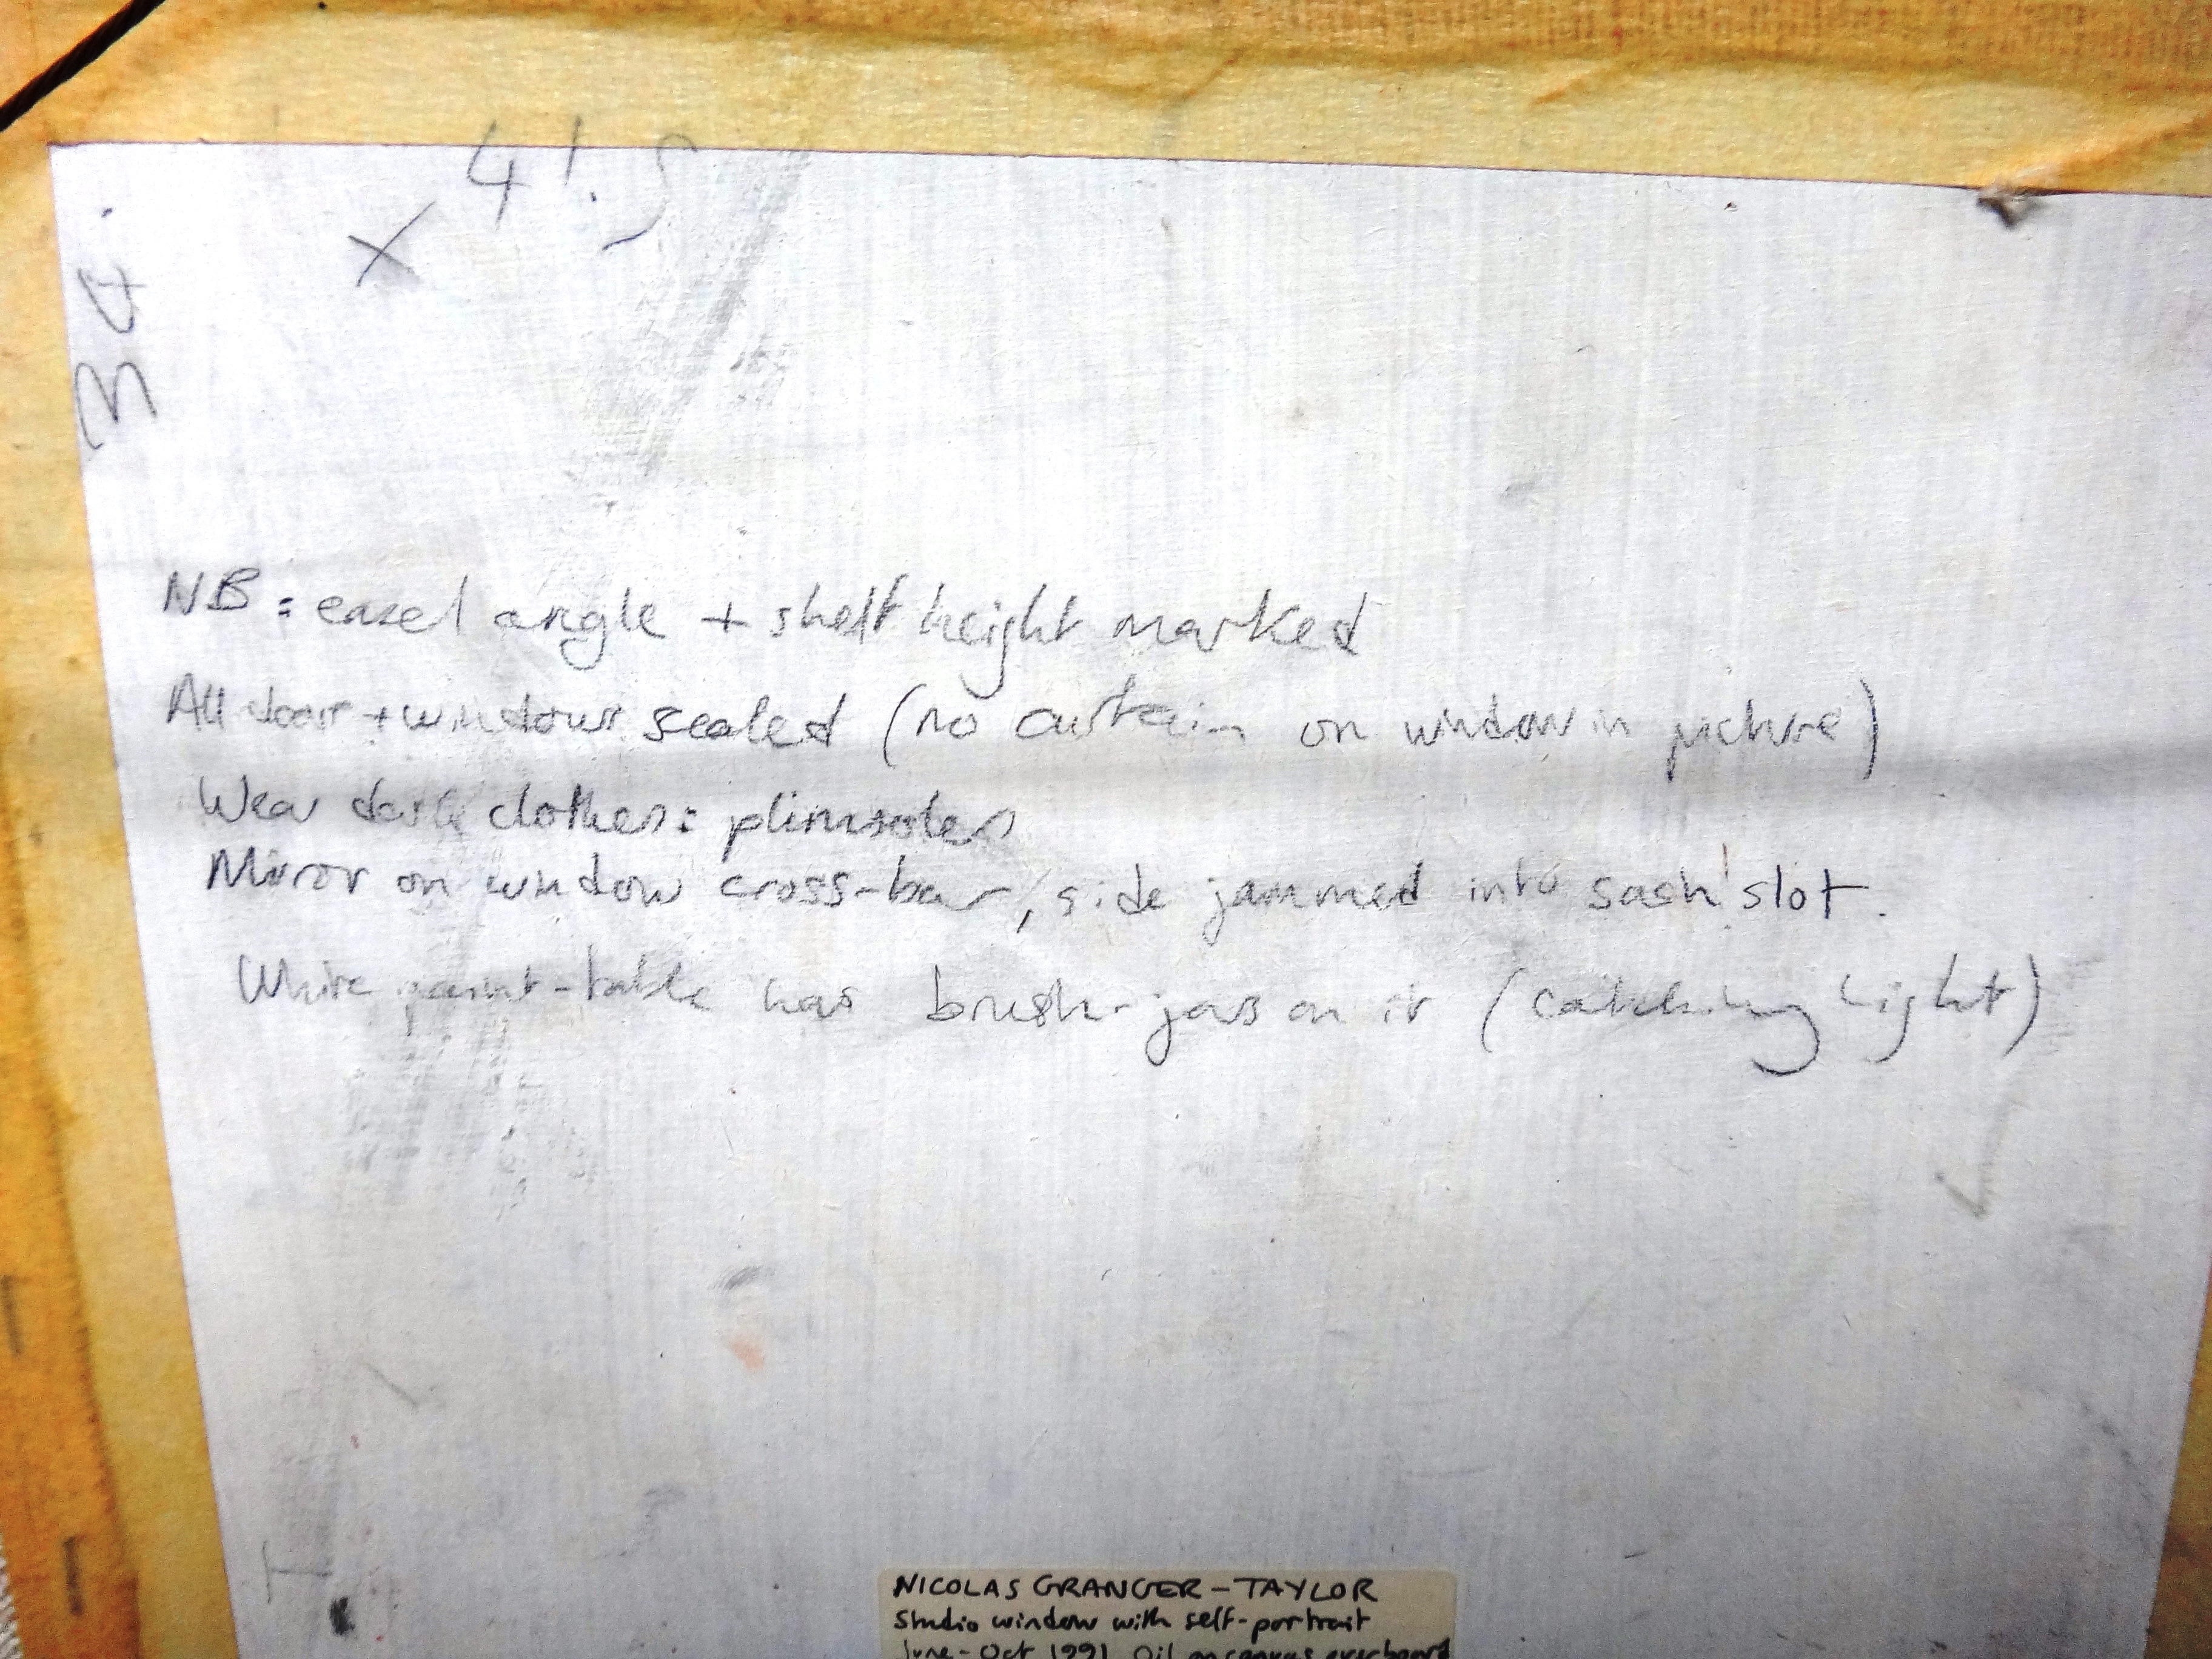 x 41.5
34.
NB: easel angle + shelf height marked
All doors + windows sealed (no curtain on window in picture)
Wear dark clothes: plimsoles
Mirror on window cross-bar, side jammed into sash slot.
White paint-table has brush-jars on it (catching light)
NICOLAS GRANGER-TAYLOR
Studio window with self-portrait
June-Oct 1991 Oil on canvas over board